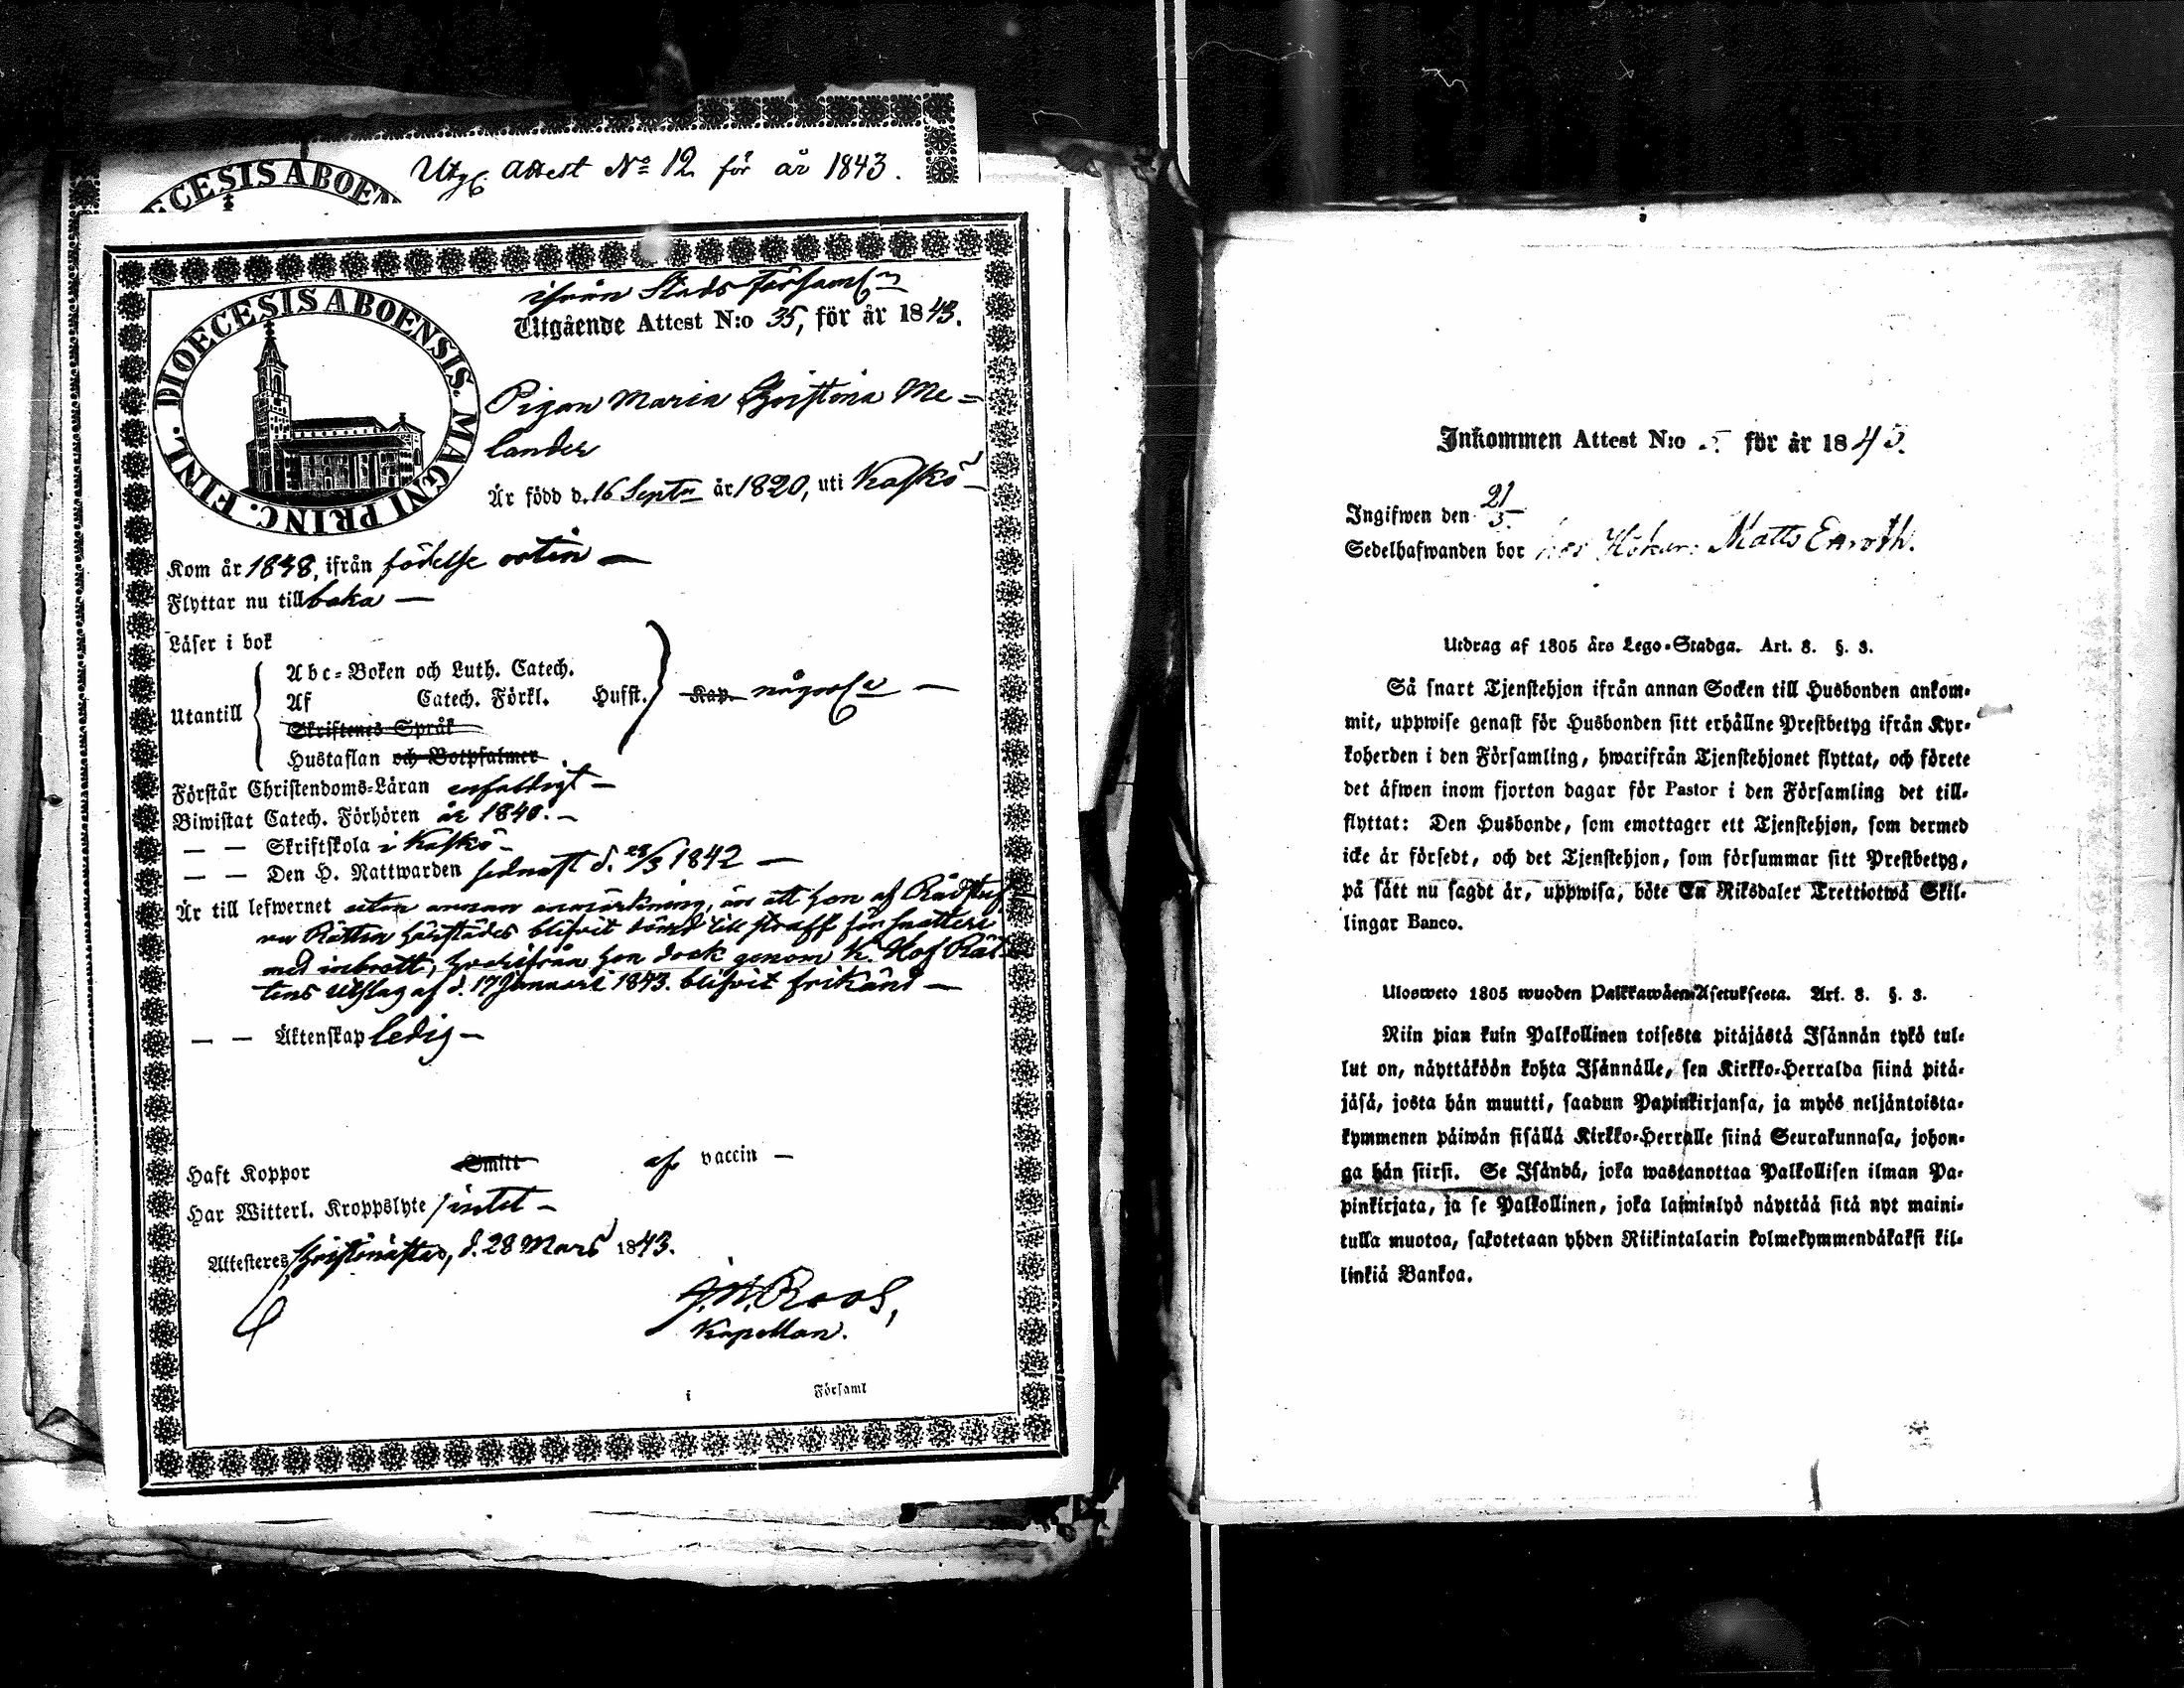 Utg. Attest No 12 för år 1843.
ifrån Stads församl.
DIOECESIS ABOENSIS. MAGNI PRINC. FINL.
Utgående Attest N:o 35, för år 1843.
Pigan Maria Christina Me=
lander
Är född d. 16 Septr år 1820, uti Kaskö
Kom år 1838, ifrån födelse orten —
Flyttar nu tillbaka —
Läser i bok
Utantill
Abc=Boken och Luth. Catech.
Af Catech. Förkl. Hufst. Kap. någorl. —
Skriftenes Språk
Hustaflan och Botpsalmer
Förstår Christendoms=Läran enfaldigt —
Biwistat Catech. Förhören år 1840. —
— — Skriftskola i Kaskö
— — Den H. Nattwarden sednast d. 28/3 1842 —
Är till lefwernet utan annan anmärkning, än att hon af Rådstuf
vu Rätten härstädes blifvit dömd till straff för snatteri
med inbrott, hvarifrån hon dock genom K. Hof Rät
tens Utslag af d. 17 Januari 1843. blifvit frikänd —
— — Äktenskap ledig —
Haft Koppor Smitt af vaccin —
Har Witterl. Kroppslyte intet —
Attesteres Christinæstad, d. 28 Mars 1843.
Roos,
Kapellan.
i Församl
Inkommen Attest N:o 5 för år 1843.
Ingifwen den 21/5.
Sedelhafwanden bor hos Hökar. Matts Enroth.
Utdrag af 1805 års Lego=Stadga. Art. 8. §. 3.
Så snart Tjenstehjon ifrån annan Socken till Husbonden ankom=
mit, uppwise genast för Husbonden sitt erhållne Prestbetyg ifrån Kyr=
koherden i den Församling, hwarifrån Tjenstehjonet flyttat, och förete
det äfwen inom fjorton dagar för Pastor i den Församling det till=
flyttat: Den Husbonde, som emottager ett Tjenstehjon, som dermed
icke är försedt, och det Tjenstehjon, som försummar sitt Prestbetyg,
på sätt nu sagdt är, uppwisa, böte En Riksdaler Trettiotwå Skil=
lingar Banco.
Ulosweto 1805 wuoden Palkkawäen=Asetuksesta. Art. 8. §. 3.
Niin pian kuin Palkollinen toisesta pitäjästä Isännän tykö tul=
lut on, näyttäköön kohta Isännälle, sen Kirkko=Herralda siinä pitä=
jäsä, josta hän muutti, saadun Papinkirjansa, ja myös neljäntoista=
kymmenen päiwän sisällä Kirkko=Herralle siinä Seurakunnasa, johon=
ga hän siirsi. Se Isändä, joka wastanottaa Palkollisen ilman Pa=
pinkirjata, ja se Palkollinen, joka laiminlyö näyttää sitä nyt maini=
tulla muotoa, sakotetaan yhden Riikintalarin kolmekymmendäkaksi kil=
linkiä Bankoa.